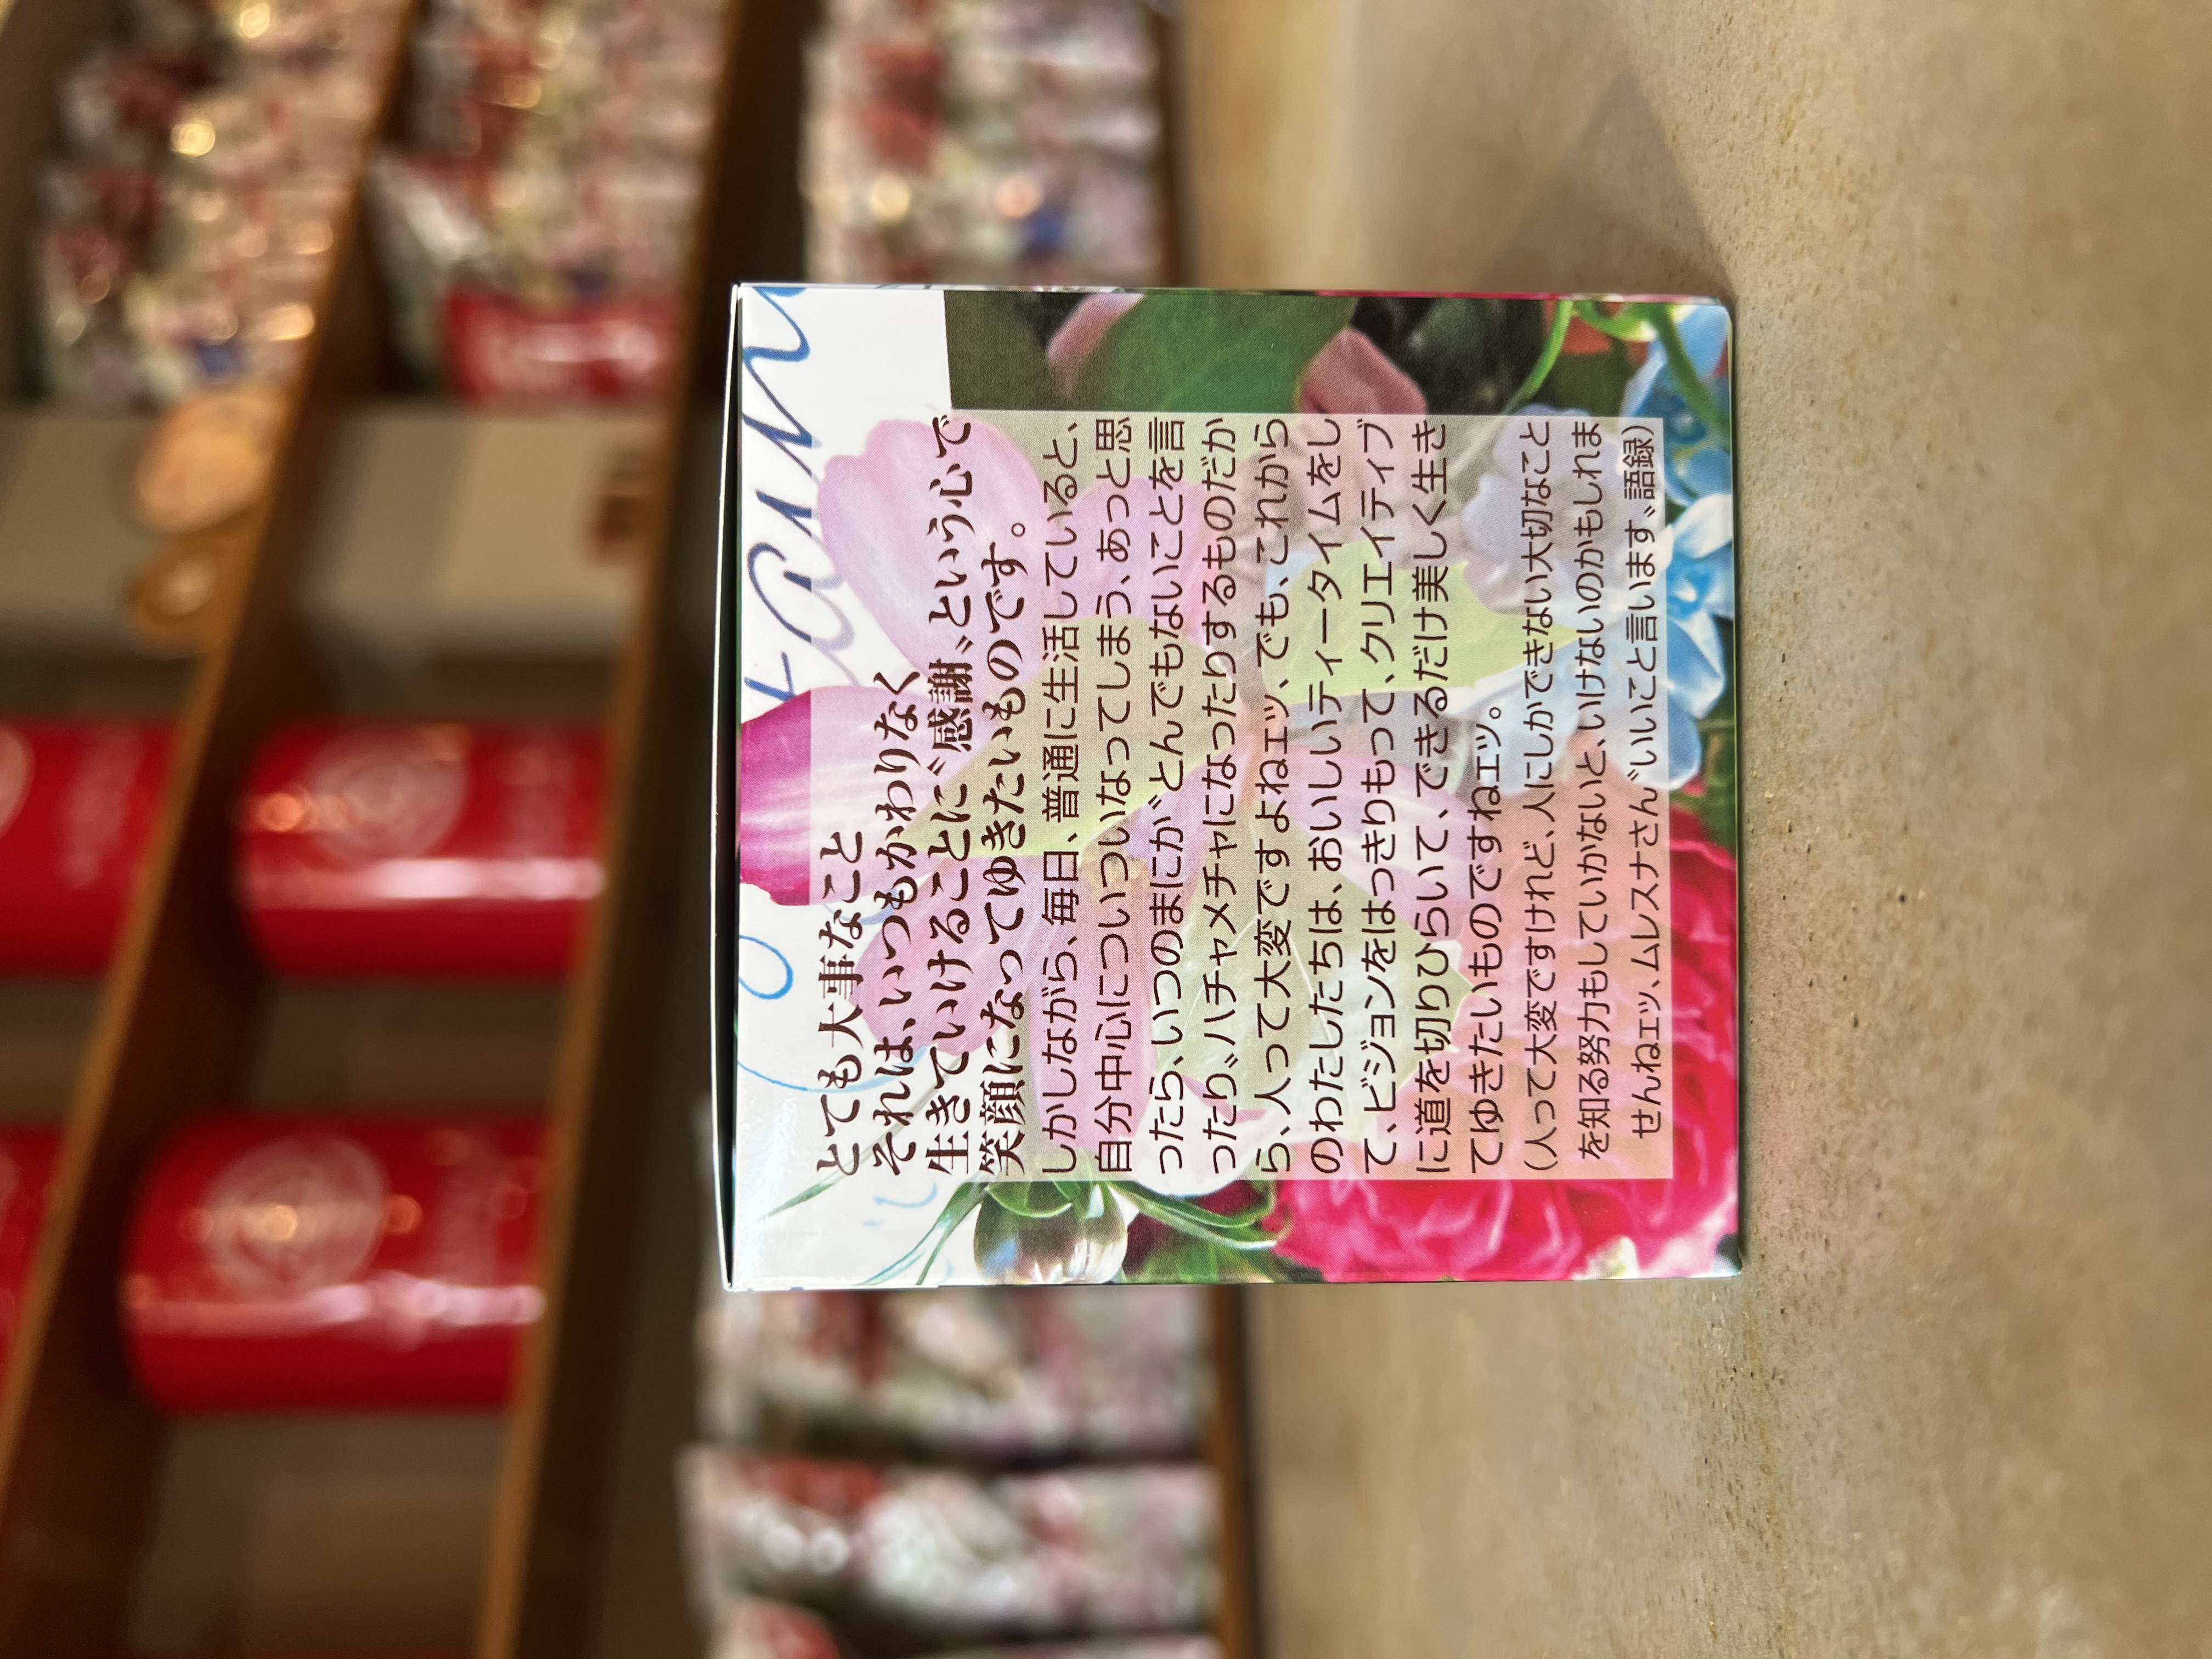 とても大事なこと
それは、いつもかわりなく
生きていけることに〝感謝〟という心で
笑顔になってゆきたいものです。
しかしながら、毎日、普通に生活していると、
自分中心についついなってしまう、あっと思
ったら、いつのまにか〝とんでもないことを言
ったり〟ハチャメチャになったりするものだか
ら、人って大変ですよねェッ、でも、これから
のわたしたちは、おいしいティータイムをし
て、ビジョンをはっきりもって、クリエイティブ
に道を切りひらいて、できるだけ美しく生き
てゆきたいものですねェッ。
(人って大変ですけれど、人にしかできない大切なこと
を知る努力もしていかないと、いけないのかもしれま
せんねェッ、ムレスナさん〝いいこと言います、語録)